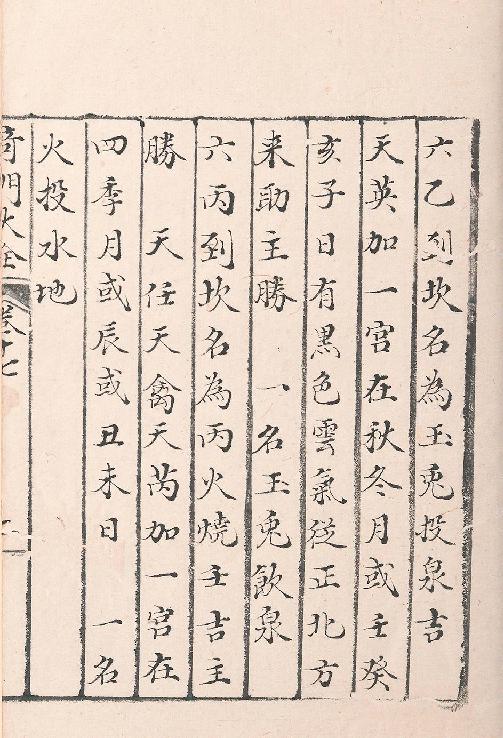 六乙到坎名為玉兎投泉吉
天英加一宮在秋冬月或壬癸
亥子日有黒色雲氣從正北方
来助主勝　一名玉兎飲泉
六丙到坎名為丙火燒壬吉主
勝　天任天禽天芮加一宮在
四季月或辰或丑未日　一名
火投水地
奇門大全　卷十七